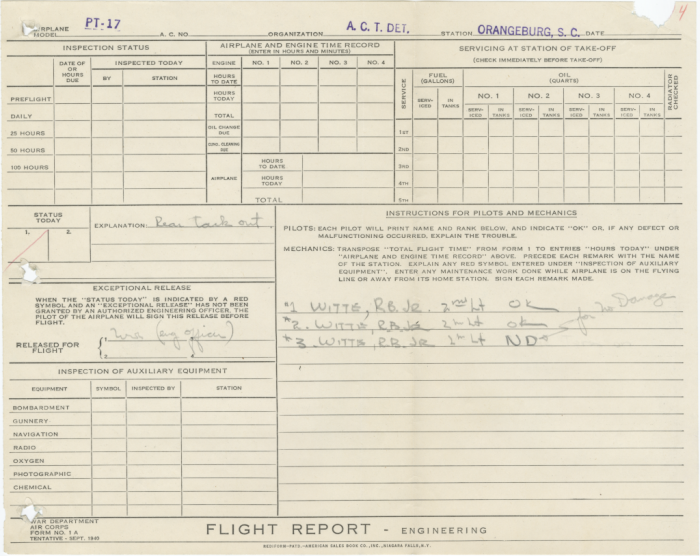 4
AIRPLANE MODEL PT-17 A. C. NO. ORGANIZATION A. C. T. DET. STATION ORANGEBURG, S. C. DATE
INSPECTION STATUS
DATE OF OR HOURS DUE
INSPECTED TODAY
BY STATION
PREFLIGHT
DAILY
25 HOURS
50 HOURS
100 HOURS
AIRPLANE AND ENGINE TIME RECORD
(ENTER IN HOURS AND MINUTES)
ENGINE NO. 1 NO. 2 NO. 3 NO. 4
HOURS TO DATE
HOURS TODAY
TOTAL
OIL CHANGE DUE
DUE
AIRPLANE
HOURS TO DATE
HOURS TODAY
TOTAL
SERVICING AT STATION OF TAKE-OFF
(CHECK IMMEDIATELY BEFORE TAKE-OFF)
SERVICE
FUEL (GALLONS)
OIL (QUARTS)
RADIATOR CHECKED
NO. 1 NO. 2 NO. 3 NO. 4
SERV-ICED IN TANKS SERV-ICED IN TANKS SERV-ICED IN TANKS SERV-ICED IN TANKS SERV-ICED IN TANKS
1ST
2ND
3RD
4TH
5TH
STATUS TODAY
1. 2.
EXPLANATION: Rear Tach out.
EXCEPTIONAL RELEASE
WHEN THE "STATUS TODAY" IS INDICATED BY A RED
SYMBOL AND AN "EXCEPTIONAL RELEASE" HAS NOT BEEN
GRANTED BY AN AUTHORIZED ENGINEERING OFFICER, THE
PILOT OF THE AIRPLANE WILL SIGN THIS RELEASE BEFORE
FLIGHT.
RELEASED FOR FLIGHT
1. (Eng officer)
2.
INSPECTION OF AUXILIARY EQUIPMENT
EQUIPMENT SYMBOL INSPECTED BY STATION
BOMBARDMENT
GUNNERY
NAVIGATION
RADIO
OXYGEN
PHOTOGRAPHIC
CHEMICAL
INSTRUCTIONS FOR PILOTS AND MECHANICS
PILOTS: EACH PILOT WILL PRINT NAME AND RANK BELOW, AND INDICATE "OK" OR, IF ANY DEFECT OR
MALFUNCTIONING OCCURRED, EXPLAIN THE TROUBLE.
MECHANICS: TRANSPOSE "TOTAL FLIGHT TIME" FROM FORM 1 TO ENTRIES "HOURS TODAY" UNDER
"AIRPLANE AND ENGINE TIME RECORD" ABOVE. PRECEDE EACH REMARK WITH THE NAME
OF THE STATION. EXPLAIN ANY RED SYMBOL ENTERED UNDER "INSPECTION OF AUXILIARY
EQUIPMENT". ENTER ANY MAINTENANCE WORK DONE WHILE AIRPLANE IS ON THE FLYING
LINE OR AWAY FROM ITS HOME STATION. SIGN EACH REMARK MADE.
#1 WITTE, R.B. JR. 2nd Lt OK
#2. WITTE, R.B. JR 2nd Lt OK
#3. WITTE, R.B. JR 2nd Lt ND
for No Damage
WAR DEPARTMENT
AIR CORPS
FORM NO. 1 A
TENTATIVE - SEPT. 1940
FLIGHT REPORT - ENGINEERING
REDIFORM-PACK-AMERICAN SALES BOOK CO., INC., NIAGARA FALLS, N.Y.